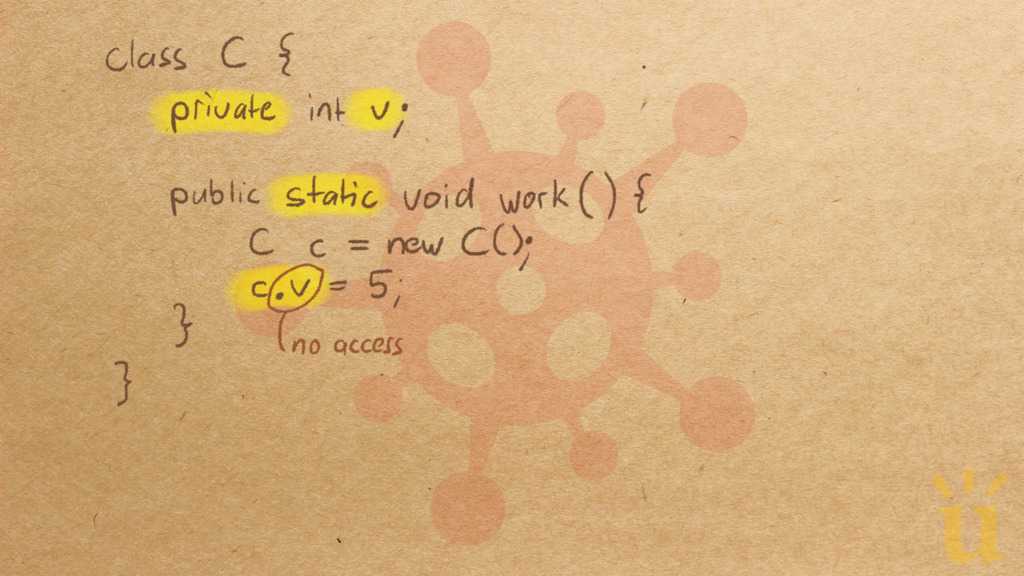 class C {
private int v;
public static void work() {
C c = new C();
c.v = 5;
}
no access
}
u